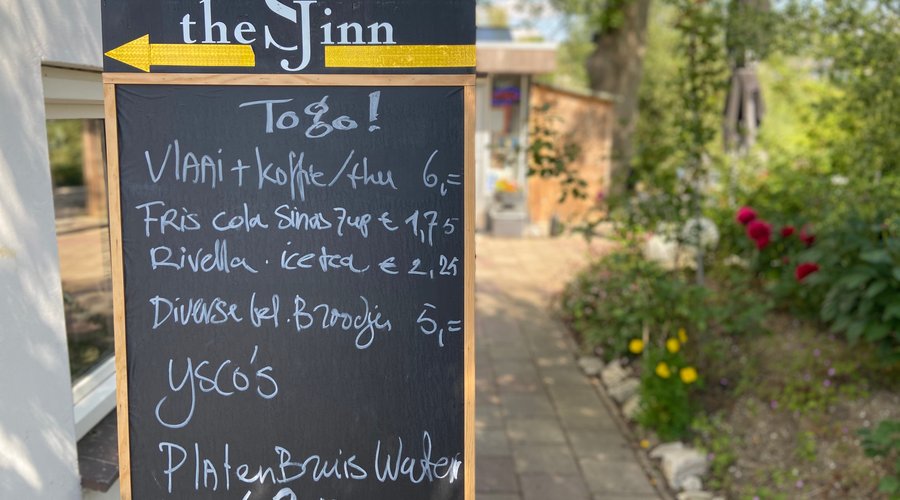 the Jinn
To go!
Vlaai + koffie/thee 6,=
Fris cola Sinas 7up € 1,75
Rivella . ice tea € 2,25
Diverse kl. Broodjes 5,=
YSCO'S
Platen Bruis Water